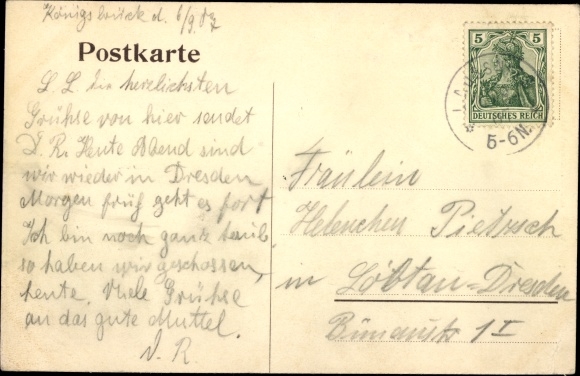 Königsbrück d. 6/9.07
Postkarte
L. L. die herzlichsten
Grühse von hier sendet
D. R. Heute Abend sind
wir wieder in Dresden
Morgen früh geht es fort
Ich bin noch ganz taub
so haben wir geschossen,
heute. Viele Grühse
an das gute Muttel.
D. R.
5 5
DEUTSCHES REICH
5-6N.
Fräulein
Helenchen Pietzsch
in Löbtau-Dresden
1 I